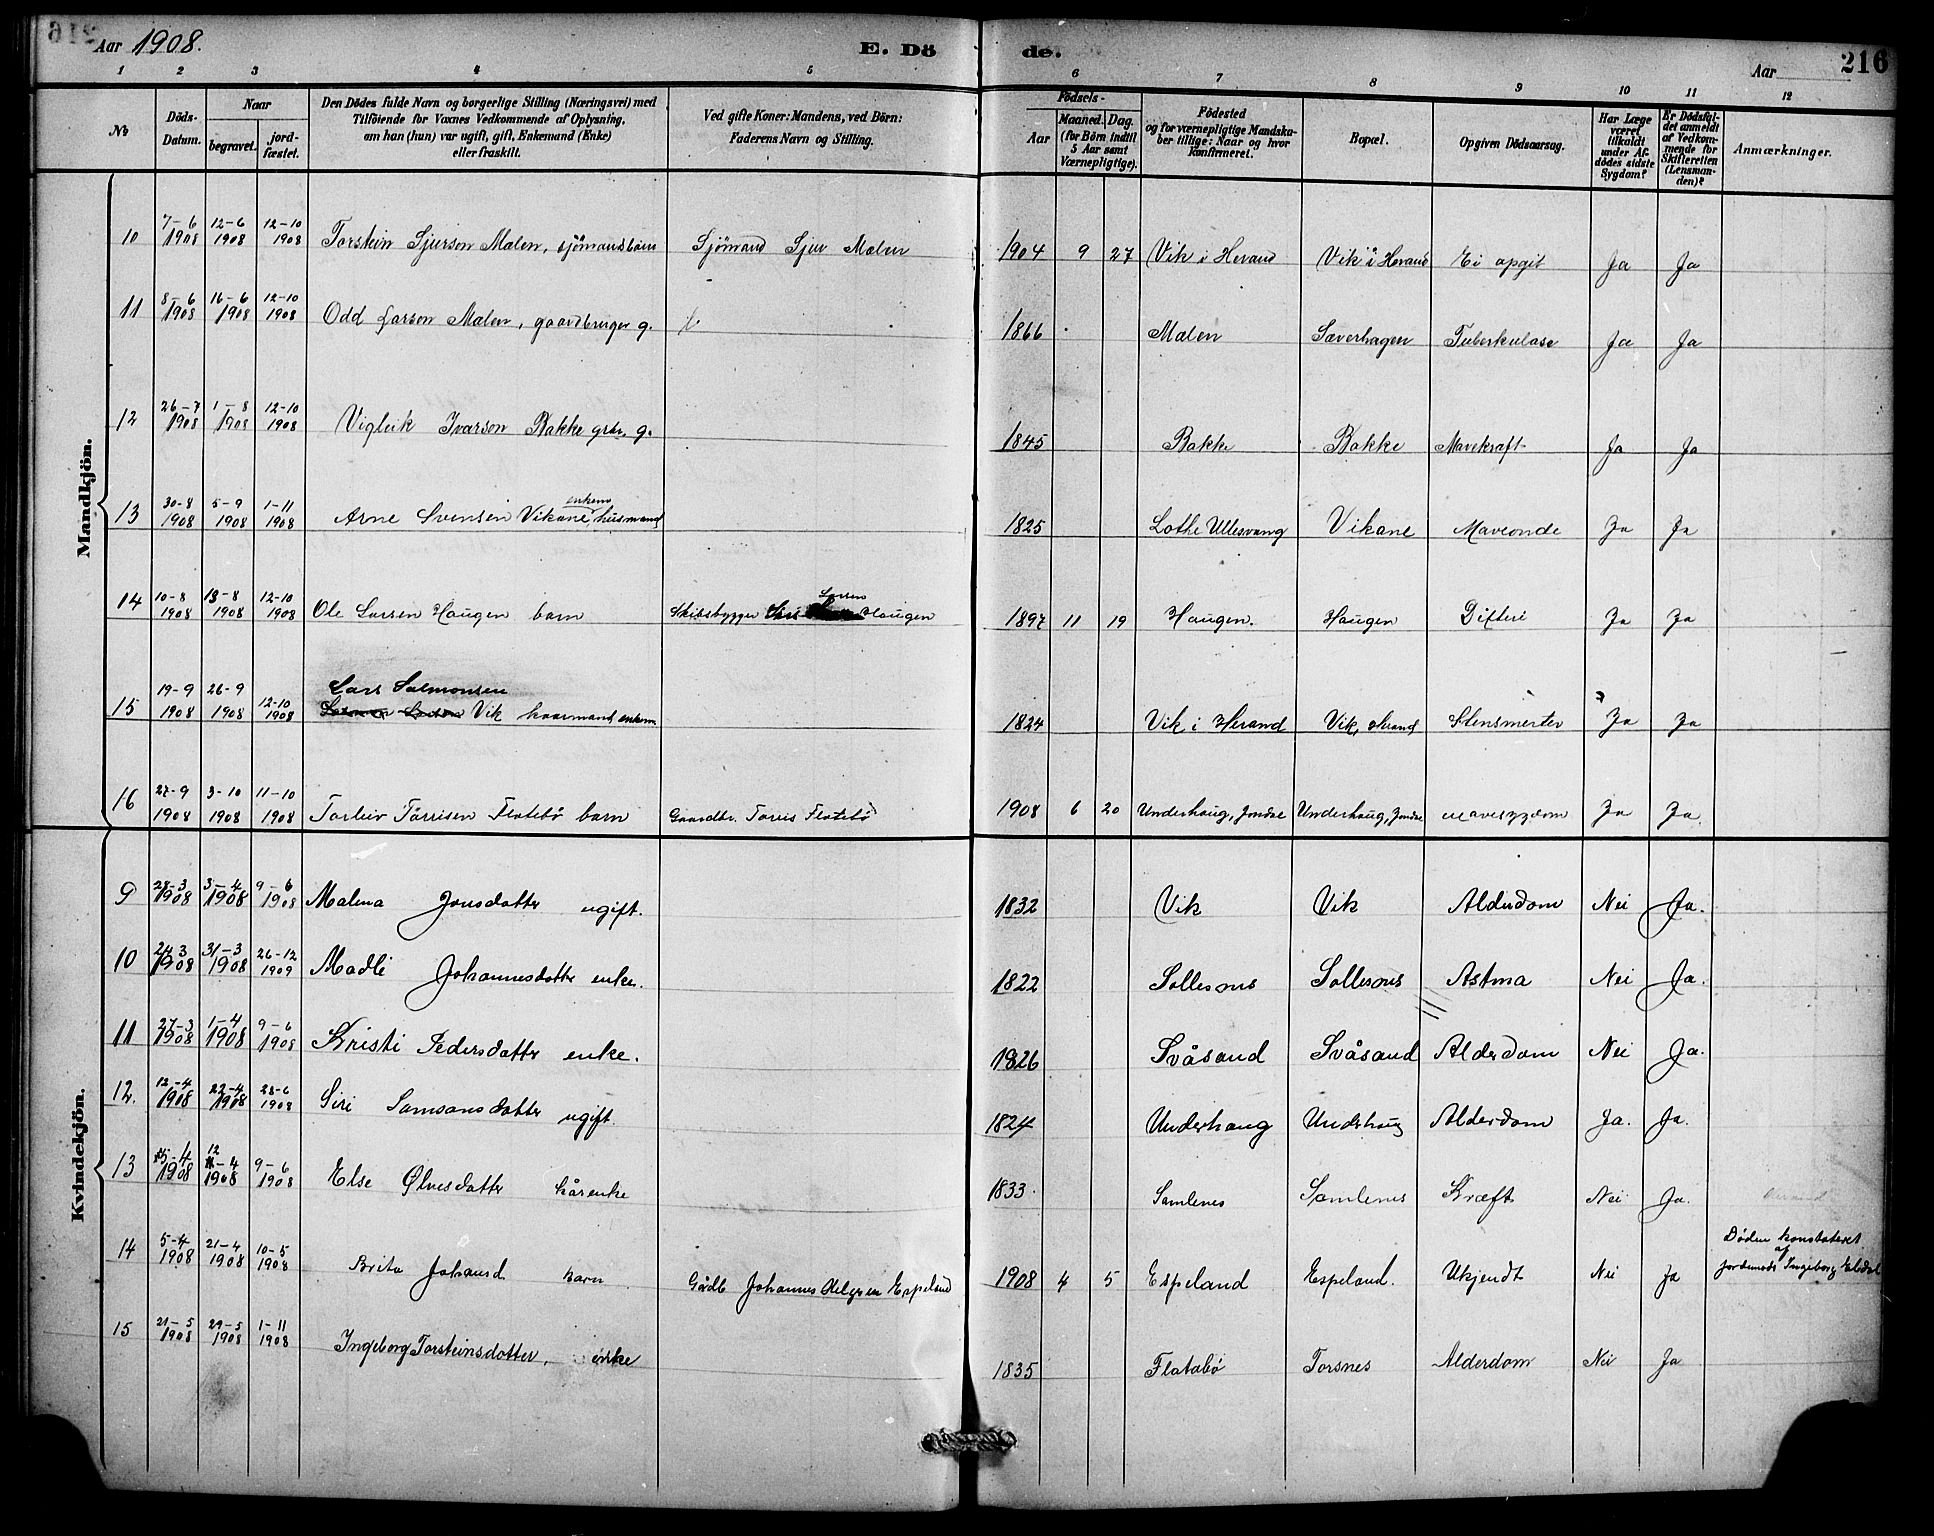 Aar 1908. E. Dö de. Aar 216
1 2 3 4 5 6 7 8 9 10 11 12
No
Döds-Datum.
Naar
begravet.
jordfæstet.
Den Dödes fulde Navn og borgerlige Stilling (Næringsvei) med
Tilföiende for Voxnes Vedkommende af Oplysning,
om han (hun) var ugift, gift, Enkemand (Enke)
eller fraskilt.
Ved gifte Koner: Mandens, ved Börn:
Faderens Navn og Stilling.
Födsels-
Aar
Maaned. Dag.
(for Börn indtil
5 Aar samt
Værnepligtige).
Födested
og for værnepligtige Mandska-
ber tillige: Naar og hvor
konfirmeret.
Bopæl.
Opgiven Dödsaarsag.
Har Læge
været
tilkaldt
under Af-
dödes sidste
Sygdom?
Er Dödsfal-
det anmeldt
af Vedkom-
mende for
Skifteretten
(Lensman-
den)?
Anmærkninger.
Mandkjön.
10 7-6 1908 12-6 1908 12-10 1908 Torstein Sjurson Malen, sjömandsbarn Sjömand Sjur Malen 1904 9 27 Vik i Herand Vik i Herand Ei opgit Ja Ja
11 8-6 1908 16-6 1908 12-10 1908 Odd Larson Malen, gaardbruger g. 1866 Malen Saverhagen Tuberkulose Ja Ja
12 26-7 1908 1-8 1908 12-10 1908 Vigleik Ivarson Bakke grbr. g. 1845 Bakke Bakke Mavekræft Ja Ja
13 30-8 1908 5-9 1908 1-11 1908 Arne Svensen Vikane, enkem husmand 1825 Lothe Ullesvang Vikane Maveonde Ja Ja
14 10-8 1908 13-8 1908 12-10 1908 Ole Larsen Haugen barn Skibsbygger Lars Larsen Haugen 1897 11 19 Haugen. Haugen Difteri Ja Ja
15 19-9 1908 26-9 1908 12-10 1908 Lars Salmonsen Vik kaarmand enkem. 1824 Vik i Herand Vik, Herand Stensmerter Ja Ja
16 27-9 1908 3-10 1908 11-10 1908 Torleiv Torrisen Flatebö barn Gaardbr. Torris Flatebö 1908 6 20 Underhaug, Jondal Underhaug, Jondal mavesygdom Ja Ja.
Kvindekjön.
9 28-3 1908 3-4 1908 9-6 1908 Malena Jonsdotter ugift. 1832 Vik Vik Alderdom Nei Ja.
10 24-3 1908 31-3 1908 26-12 1909 Madli Johannesdotter enke. 1822 Sollesnes Sollesnes Astma Nei Ja.
11 27-3 1908 1-4 1908 9-6 1908 Kristi Pedersdotter enke. 1826 Svåsand Svåsand Alderdom Nei Ja.
12. 12-4 1908 22-4 1908 28-6 1908 Siri Samsonsdotter ugift. 1824 Underhaug Underhaug Alderdom Ja. Ja.
13 5-4 1908 12-4 1908 9-6 1908 Else Ølvesdotter kårenke 1833. Samlenes Samlenes Kræft Nei Ja.
14 5-4 1908 21-4 1908 10-5 1908 Brita Johansd. barn Gårdb. Johannes Helgesen Espeland 1908 4 5 Espeland Espeland. Ukjendt Nei Ja Døden konstateret af jordemoder Ingeborg
15 21-5 1908 29-5 1908 1-11 1908 Ingeborg Torsteinsdotter, enke 1835 Flatabö Torsnes Alderdom Nei Ja